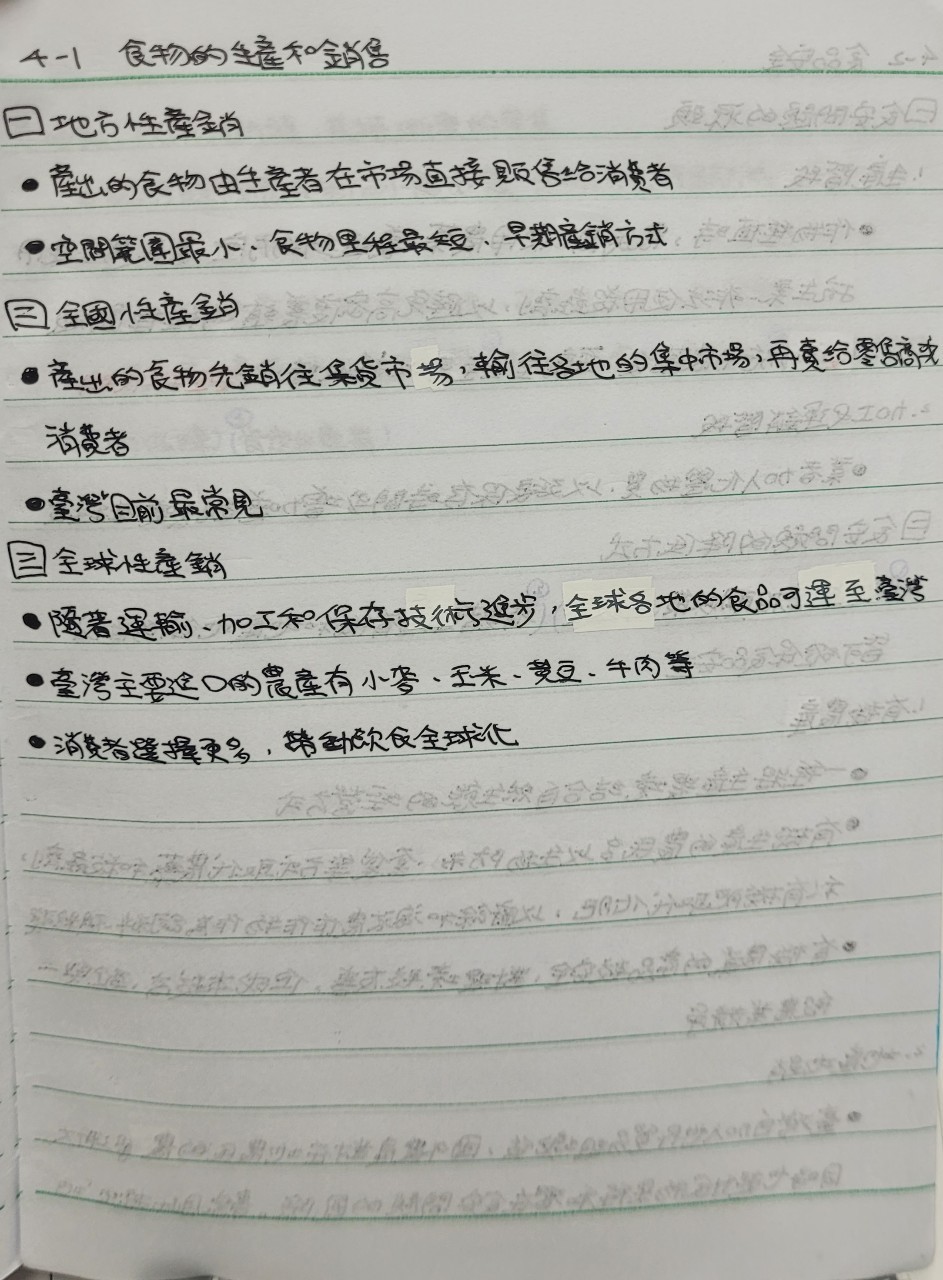 4-1 食物的生產和銷售
一 地方性產銷
● 產出的食物由生產者在市場直接販售給消費者
● 空間範圍最小、食物里程最短、早期產銷方式
二 全國性產銷
● 產出的食物先銷往集貨市場，輸往各地的集中市場，再賣給零售商或
消費者
● 臺灣目前最常見
三 全球性產銷
● 隨著運輸、加工和保存技術進步，全球各地的食品可運至臺灣
● 臺灣主要進口的農產有小麥、玉米、黃豆、牛肉等
● 消費者選擇更多，帶動飲食全球化